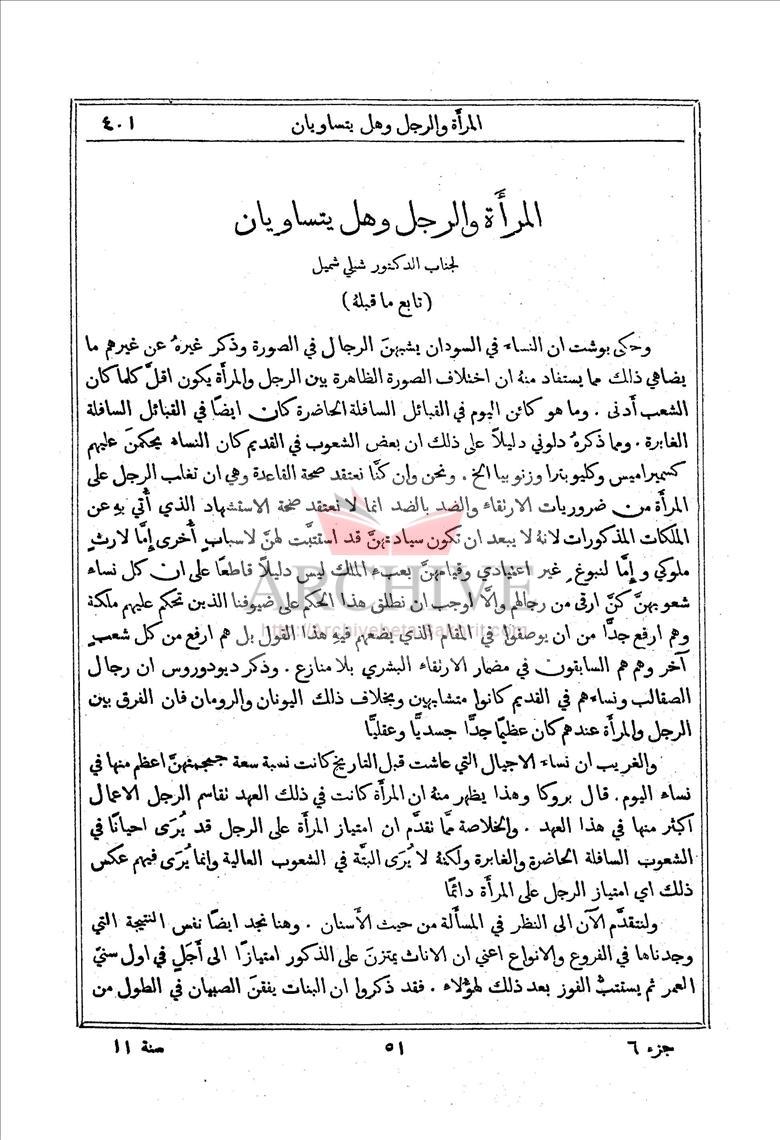 المرأة والرجل وهل يتساويان ٤٠١
المرأَة والرجل وهل يتساويان
لجناب الدكتور شبلي شميل
(تابع ما قبلهُ)
وحكى بوشت ان النساء في السودان يشبهنَ الرجال في الصورة وذكر غيرهُ عن غيرهم ما
يضاهي ذالك مما يستفاد منهُ ان اختلاف الصورة الظاهرة بين الرجل والمرأة يكون اقلَّ كلما كان
الشعب أدنى . وما هو كائن اليوم في القبائل السافلة الحاضرة كان ايضًا في القبائل السافلة
الغابرة . ومما ذكرهُ دلوني دليلاً على ذلك ان بعض الشعوب في القديم كان النساء يحكمنَ عليهم
كسميراميس وكليوبترا وزنوبيا الخ . ونحن وإن كنَّا نعتقد صحة القاعدة وهي ان تغلب الرجل على
المرأة من ضروريات الارتقاء والضد بالضد انما لا نعتقد صحة الاستشهاد الذي أُتي بهِ عن
الملكات المذكورات لانهُ لا يبعد ان تكون سيادتهنَّ قد استتبَّت لهنَّ لاسبابٍ أُخرى إمَّا لارثٍ
ملوكي وإمَّا لنبوغٍ غير اعتيادي وقيامهنَّ بعبء الملك ليس دليلاً قاطعًا على ان كل نساء
شعوبهنَّ كنَّ ارقى من رجالهم وإلَّا لوجب ان نطلق هذا الحكم على ضيوفنا الذين تحكم عليهم ملكة
وهم ارفع جدًّا من ان يوصفوا في المقام الذي يضعهم فيهِ هذا القول بل هم ارفع من كل شعبٍ
آخر وهم هم السابقون في مضمار الارتقاء البشري بلا منازع . وذكر ديودوروس ان رجال
الصقالب ونساءهم في القديم كانوا متشابهين وبخلاف ذلك اليونان والرومان فان الفرق بين
الرجل والمرأة عندهم كان عظيمًا جدًّا جسديًّا وعقليًّا
والغريب ان نساء الاجيال التي عاشت قبل التاريخ كانت نسبة سعة جمجمتهنَّ اعظم منها في
نساء اليوم . قال بروكا وهذا يظهر منهُ ان المرأة كانت في ذلك العهد تقاسم الرجل الاعمال
اكثر منها في هذا العهد . والخلاصة ممَّا تقدَّم ان امتياز المرأة على الرجل قد يُرَى احيانًا في
الشعوب السافلة الحاضرة والغابرة ولكنهُ لا يُرَى البتَّة في الشعوب العالية وإنما يُرَى فيهم عكس
ذلك اي امتياز الرجل على المرأة دائمًا
ولنتقدَّم الآن الى النظر في المسألة من حيث الأسنان . وهنا نجد ايضًا نفس النتيجة التي
وجدناها في الفروع والانواع اعني ان الاناث يمتزنَ على الذكور امتيازًا الى أَجَلٍ في اول سنيّ
العمر ثم يستتبُّ الفوز بعد ذلك لهؤلاء . فقد ذكروا ان البنات يفقنَ الصبيان في الطول من
ARCHIVE
http://Archivebeta.Sakhrit.com
جزء ٦ ٥١ سنة ١١